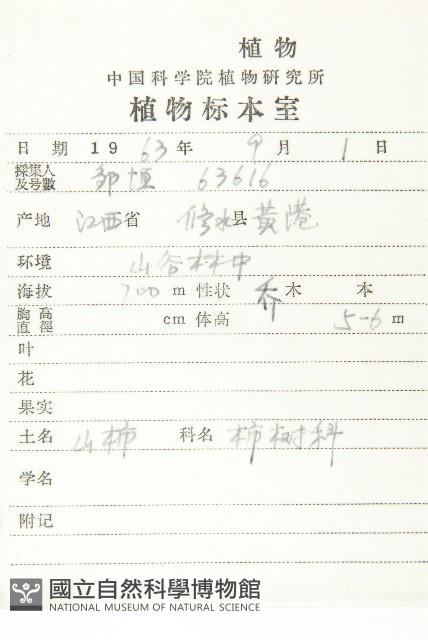 植物
中国科学院植物研究所
植物标本室
日期 1963年 9月 1日
採集人及号數 邹垣 63616
产地 江西省 修水县 黄港
环境 山谷林中
海拔 700 m 性状 乔木 本
胸高直徑 cm 体高 5-6 m
叶
花
果实
土名 山柿 科名 柿树科
学名
附记
國立自然科學博物館
NATIONAL MUSEUM OF NATURAL SCIENCE